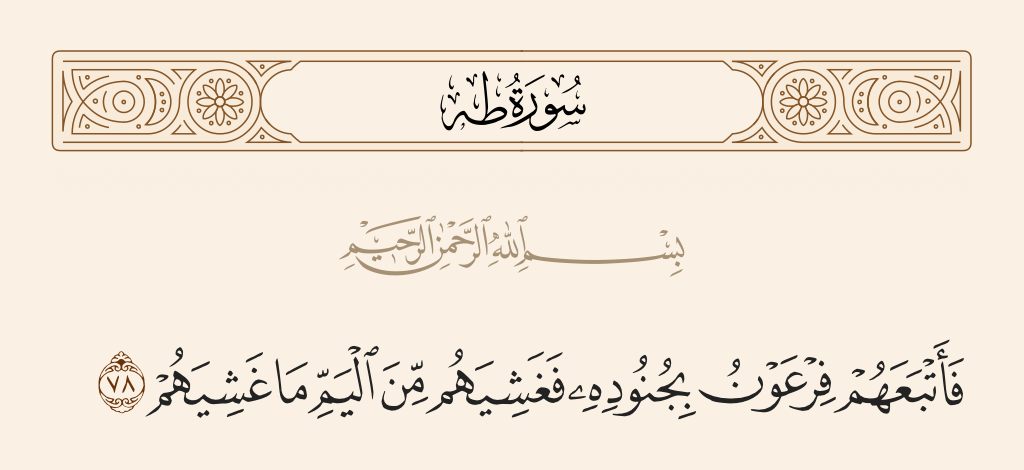 سُورَةُ طه
بِسْمِ ٱللَّهِ ٱلرَّحْمَٰنِ ٱلرَّحِيمِ
فَأَتْبَعَهُمْ فِرْعَوْنُ بِجُنُودِهِۦ فَغَشِيَهُم مِّنَ ٱلْيَمِّ مَا غَشِيَهُمْ ٧٨